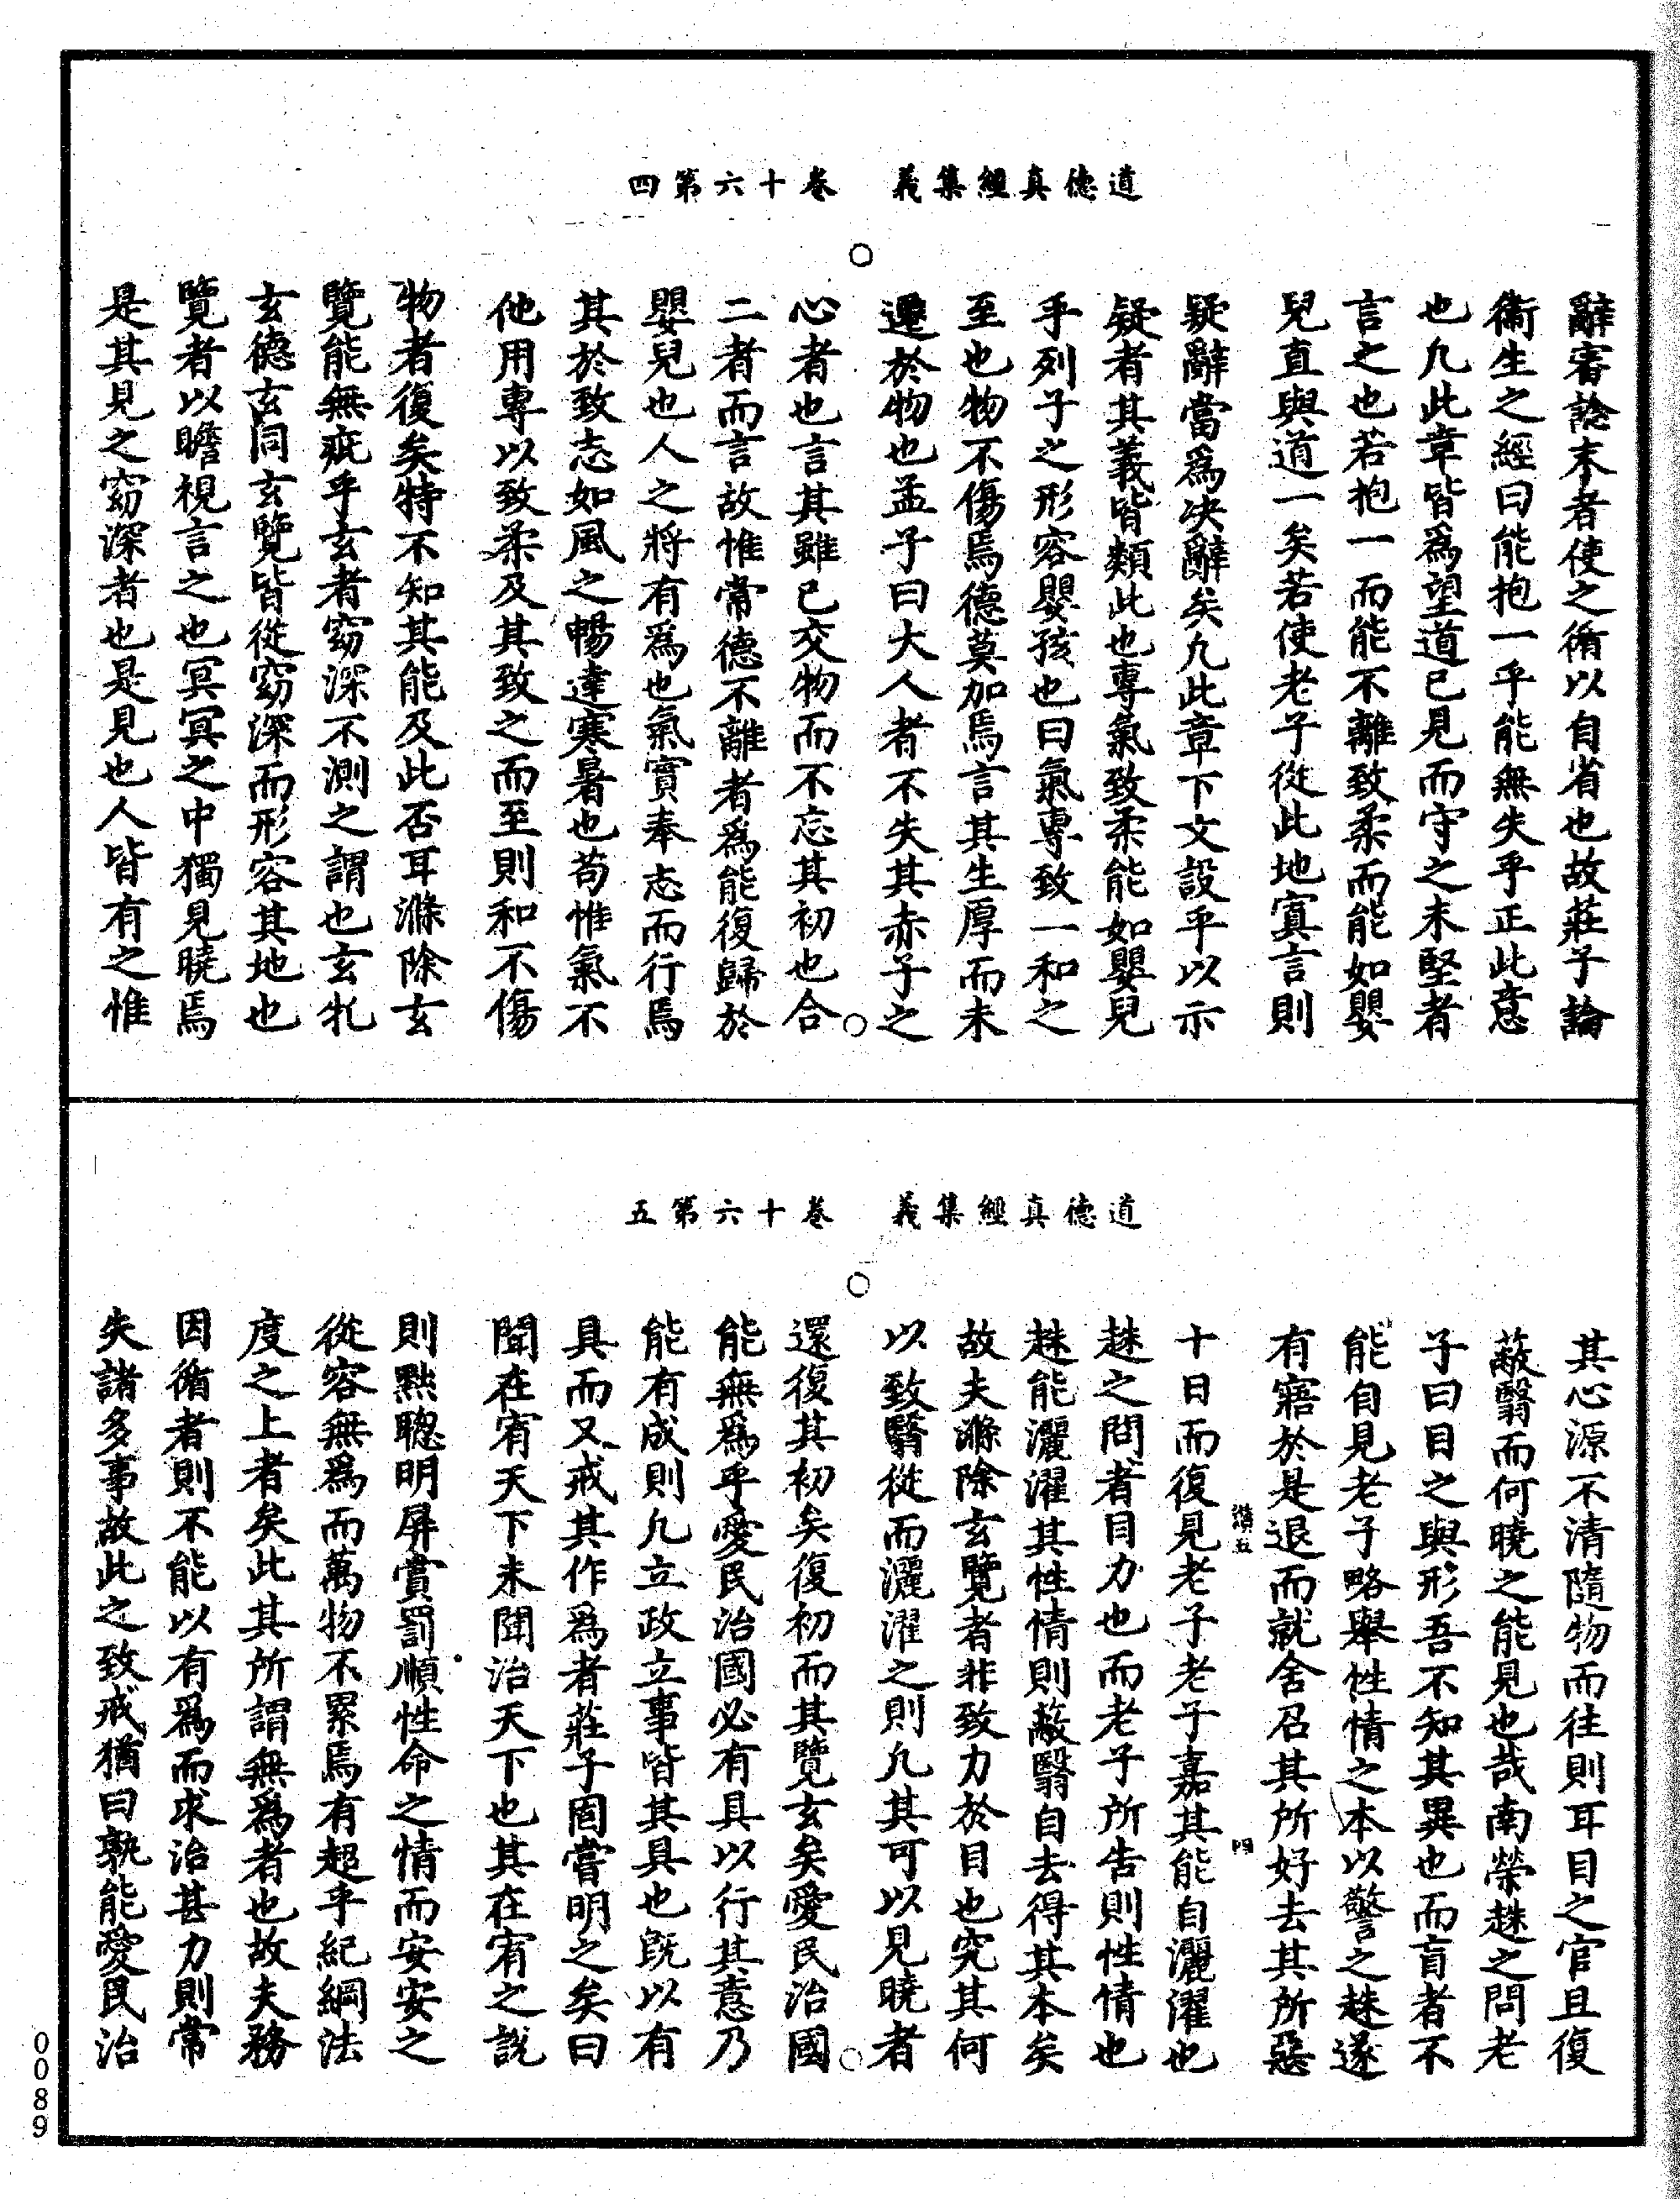 道德真經集義　卷十六第四
辭審諗末者使之循以自省也故莊子論
衞生之經曰能抱一乎能無失乎正此意
也凡此章皆爲望道已見而守之未堅者
言之也若抱一而能不離致柔而能如嬰
兒直與道一矣若使老子從此地寘言則
疑辭當爲决辭矣凡此章下文設乎以示
疑者其義皆類此也專氣致柔能如嬰兒
乎列子之形容嬰孩也曰氣專致一和之
至也物不傷焉德莫加焉言其生厚而未
遷於物也孟子曰大人者不失其赤子之
心者也言其雖已交物而不忘其初也合
二者而言故惟常德不離者爲能復歸於
嬰兒也人之將有爲也氣實奉志而行焉
其於致志如風之暢達寒暑也苟惟氣不
他用專以致柔及其致之而至則和不傷
物者復矣特不知其能及此否耳滌除玄
覽能無疵乎玄者窈深不測之謂也玄牝
玄德玄同玄覽皆從窈深而形容其地也
覽者以瞻視言之也冥冥之中獨見曉焉
是其見之窈深者也是見也人皆有之惟
道德真經集義　卷十六第五
其心源不清隨物而往則耳目之官且復
蔽翳而何曉之能見也哉南榮趎之問老
子曰目之與形吾不知其異也而盲者不
能自見老子略舉性情之本以警之趎遂
有寤於是退而就舍召其所好去其所惡
十日而復見老子老子嘉其能自灑濯也
趎之問者目力也而老子所告則性情也
趎能灑濯其性情則蔽翳自去得其本矣
故夫滌除玄覽者非致力於目也究其何
以致翳從而灑濯之則凡其可以見曉者
還復其初矣復初而其覽玄矣愛民治國
能無爲乎愛民治國必有具以行其意乃
能有成則凡立政立事皆其具也旣以有
具而又戒其作爲者莊子固嘗明之矣曰
聞在宥天下未聞治天下也其在宥之說
則黜聰明屏賞罰順性命之情而安安之
從容無爲而萬物不累焉有超乎紀綱法
度之上者矣此其所謂無爲者也故夫務
因循者則不能以有爲而求治甚力則常
失諸多事故此之致戒猶曰孰能愛民治
0089